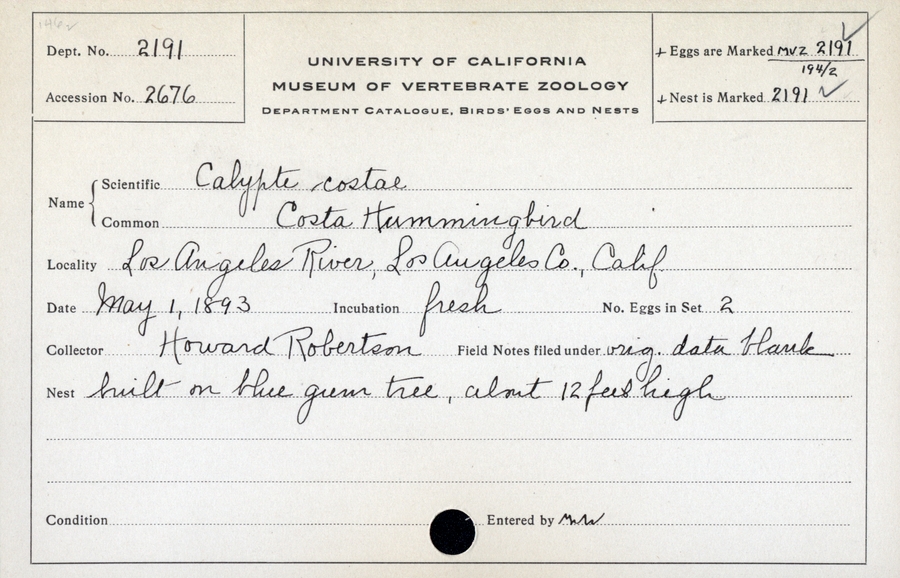 146
Dept. No. 2191
Accession No. 2676
UNIVERSITY OF CALIFORNIA
MUSEUM OF VERTEBRATE ZOOLOGY
DEPARTMENT CATALOGUE, BIRDS' EGGS AND NESTS
+ Eggs are Marked MVZ 2191
194/2
+ Nest is Marked 2191 ✓
Name
Scientific Calypte costae
Common Costa Hummingbird
Locality Los Angeles River, Los Angeles Co., Calif.
Date May 1, 1893 Incubation fresh No. Eggs in Set 2
Collector Howard Robertson Field Notes filed under orig. data blank
Nest built on blue gum tree, about 12 feet high
Condition Entered by